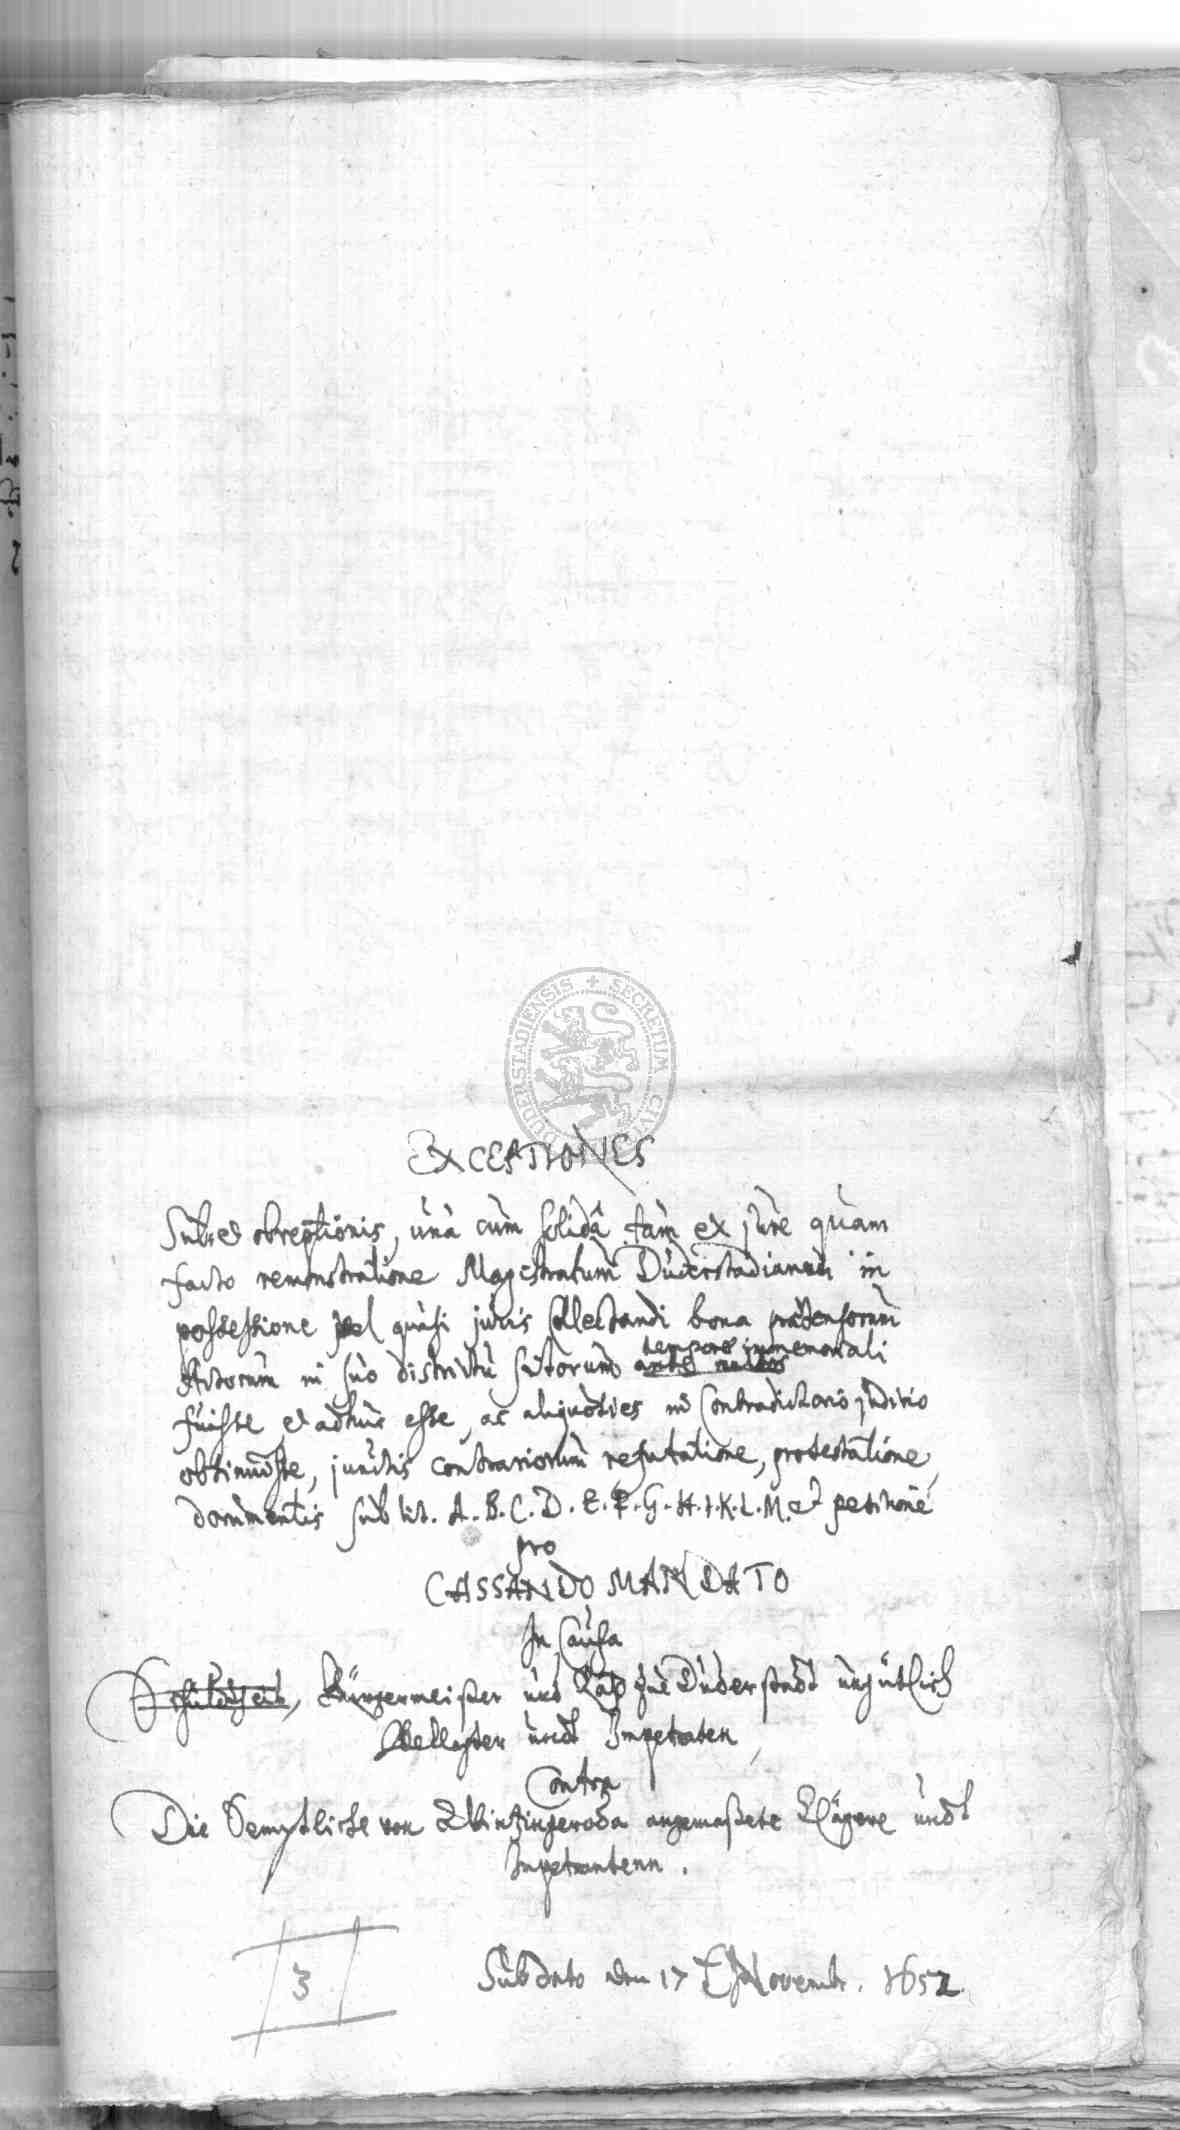 EXCEPTIONES
Sub et obreptionis, una cum solidâ tam ex jure quam
facto remonstratione Magistratum Duderstadianum in
possessione vel quasi juris collectandi bona prætensorum
Actorum in suo districtu sitorum tempore immemoriali
fuisse et adhuc esse, ac aliquoties in contradictorio juditio
obtinuisse, junctis contrariorum refutatione, protestatione,
documentis sub lit. A. B. C. D. E. F. G. H. I. K. L. M. et petitione
pro
CASSANDO MANDATO
In Causa
Schultheis, Bürgermeister und Rath zue Duderstadt ungütlich
Bellagten undt Impetraten
Contra
Die Semptliche von Wintzingeroda angemaßete Klägere undt
Impetrantenn.
Sub dato den 17 Novembr. 1652.
3
DUDERSTADIENSIS + SECRETUM CIVI